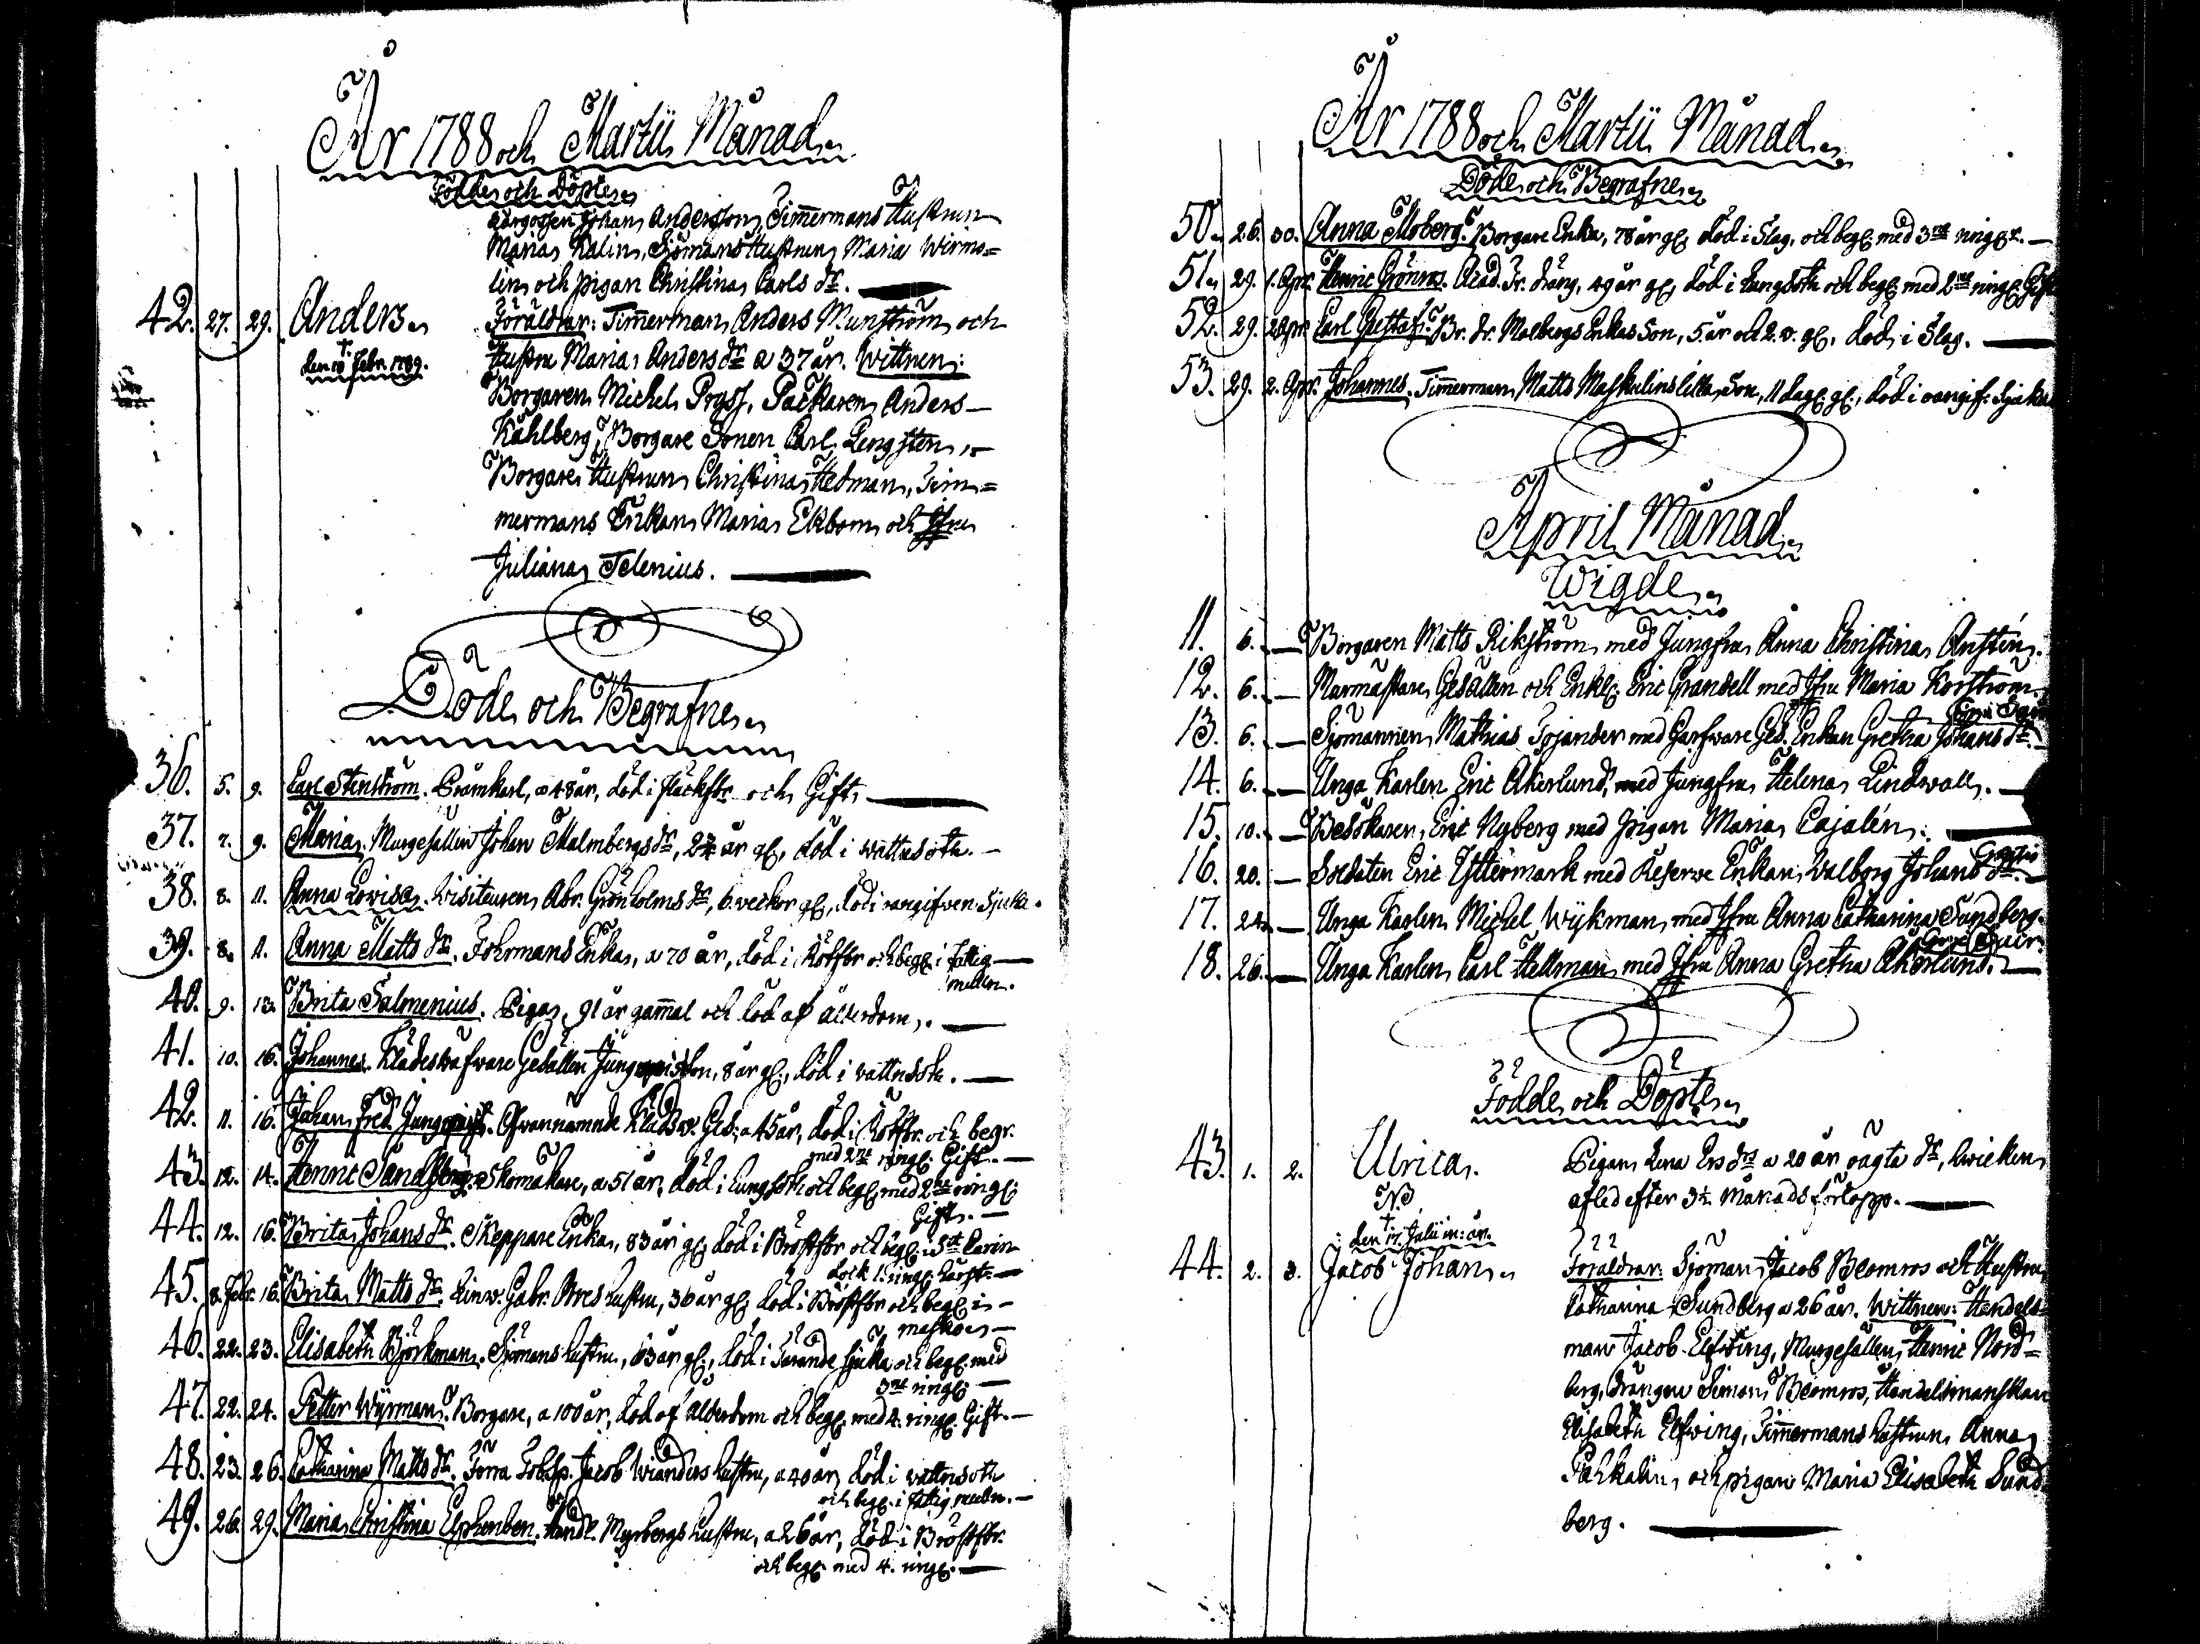 År 1788 och Martii Månad
Födde och Döpte
Johan Andersson, Timmermans Hustrun
Maria Kalin, Sjömans Hustrun Maria Wirma=
lin och pigan Christina Carls dr.
42. 27. 29. Anders
Föräldrar: Timmerman Anders Munström och
† den 10 Febr. 1789.
Hustru Maria Anders dr a 37 år. Wittnen:
Borgaren Michel Pryss, Packaren Anders
Kahlberg, Borgare Sonen Carl Lengsten,
Borgare Hustrun Christina Hedman, Tim=
mermans Enkan Maria Ekbom och Jfru
Juliana Telenius.
Döde och Begrafne
36. 5. 9. Carl Stenström. Pråmkarl, a 48 år, död i fläckfbr och Gift.
37. 7. 9. Maria. Murgesällen Johan Malmbergs dr, år gl, död i wattusoth.
38. 8. 11. Anna Lovisa. Visiteuren Abr. Grönholms dr, 6. veckor gl, död i oangifven Sjuka.
39. 8. 11. Anna Matts dr. Fohrmans Enka, a 70 år, död i Rötfbr och begr. i fattig
mullen.
40. 9. 13. Brita Salmenius. Piga, 91 år gammal och död af ålderdom.
41. 10. 16. Johannes. Klädeswäfware Gesällen Son, 8 år gl., död i vattusoth.
42. 11. 16. Johan Fred. Ofwannämnde Klädsw. Ges. a 45 år, död i Rötfbr. och begr.
med 2ne ringl. Gift.
43. 12. 14. Henric Sandberg. Skomakare, a 51 år, död i Lungsoth och begr. med 2ne ringl.
Gift.
44. 12. 16. Brita Johans dr. Skeppare Enka, 83 år gl. död i Bröstfbr och begr. i St Karin
dock 1. ringl.
45. 8. Febr. 16. Brita Matts dr. Linw. Gabr. hustru, 36 år gl. död i Bröstfbr och begr. i
46. 22. 23. Elisabeth Björkman. Sjömans hustru, 63 år gl., död i Tärande sjuka och begr. med
3ne ringl.
47. 22. 24. Petter Wyrman. Borgare, a 100 år, död af ålderdom och begr. med 4. ringl. Gift.
48. 23. 26. Catharina Matts dr. Förra Tobsp. Jacob Wianders hustru, a 40 år, död i vattusoth
och begr. i fattig mulln.
49. 26. 29. Maria Christina Elphenben. Handl. Myrbergs hustru, a 26 år, död i Bröstfbr.
och begr. med 4. ringl.
År 1788 och Martii Månad
Döde och Begrafne
50. 26. 30. Anna Moberg. Borgare Enka, 78 år gl, död i Slag, och begr. med 3ne ringr.
51. 29. 1. Apr. Henric Grönros. Acad. Tr. dräng, 49 år gl, död i Lungsoth och begr. med 2ne ringl. Gift
52. 29. 2 Apr. Carl Gustaf. Br. dr. Malbergs Enkas Son, 5. år och 2. v. gl. död i Slag.
53. 29. 2. Apr. Johannes. Timmerman Matts Maskulins Son, 11 dag. gl., död i oangif. Sjukdo
April Månad
Wigde
11. 6. — Borgaren Matts Rikström med Jungfru Anna Christina Anstén.
12. 6. — Murmästare Gesällen och Enkl. Eric Grandell med Jfru Maria Korström.
13. 6. — Sjömannen Mathias Tojander med Garfware Ges. Enkan Gretha Johans dr.
14. 6. — Unga Karlen Eric Åkerlund, med Jungfru Helena Lindwall.
15. 10. — Besökaren Eric Nyberg med pigan Maria Cajalén.
16. 20. — Soldaten Eric Yttermark med Reserve Enkan Walborg Johans dr.
17. 24. — Unga Karlen Michel Wijkman med Jfru Anna Catharina Sundberg.
18. 26. — Unga Karlen Carl Hellman med Jfru Anna Gretha Åkerlund.
Födde och Döpte
43. 1. 2. Ulrica.
Pigan Lena Ers drs a 20 år oägta dr, hwilken
NB
afled efter 3½ Månads förlopp.
† den 17. Julii in: an.
44. 2. 3. Jacob Johan
Föräldrar: Sjöman Jacob Beomros och Hustru
Catharina Sundberg a 26 år. Wittnen: Handels=
man Jacob Elfving, Murgesällen Henric Nord=
berg, drängen Simon Beomros, Handelsmanskan
Elisabeth Elfwing, Timmermans hustrun Anna
Pahkalin, och pigan Maria Elisabeth Sund
berg.